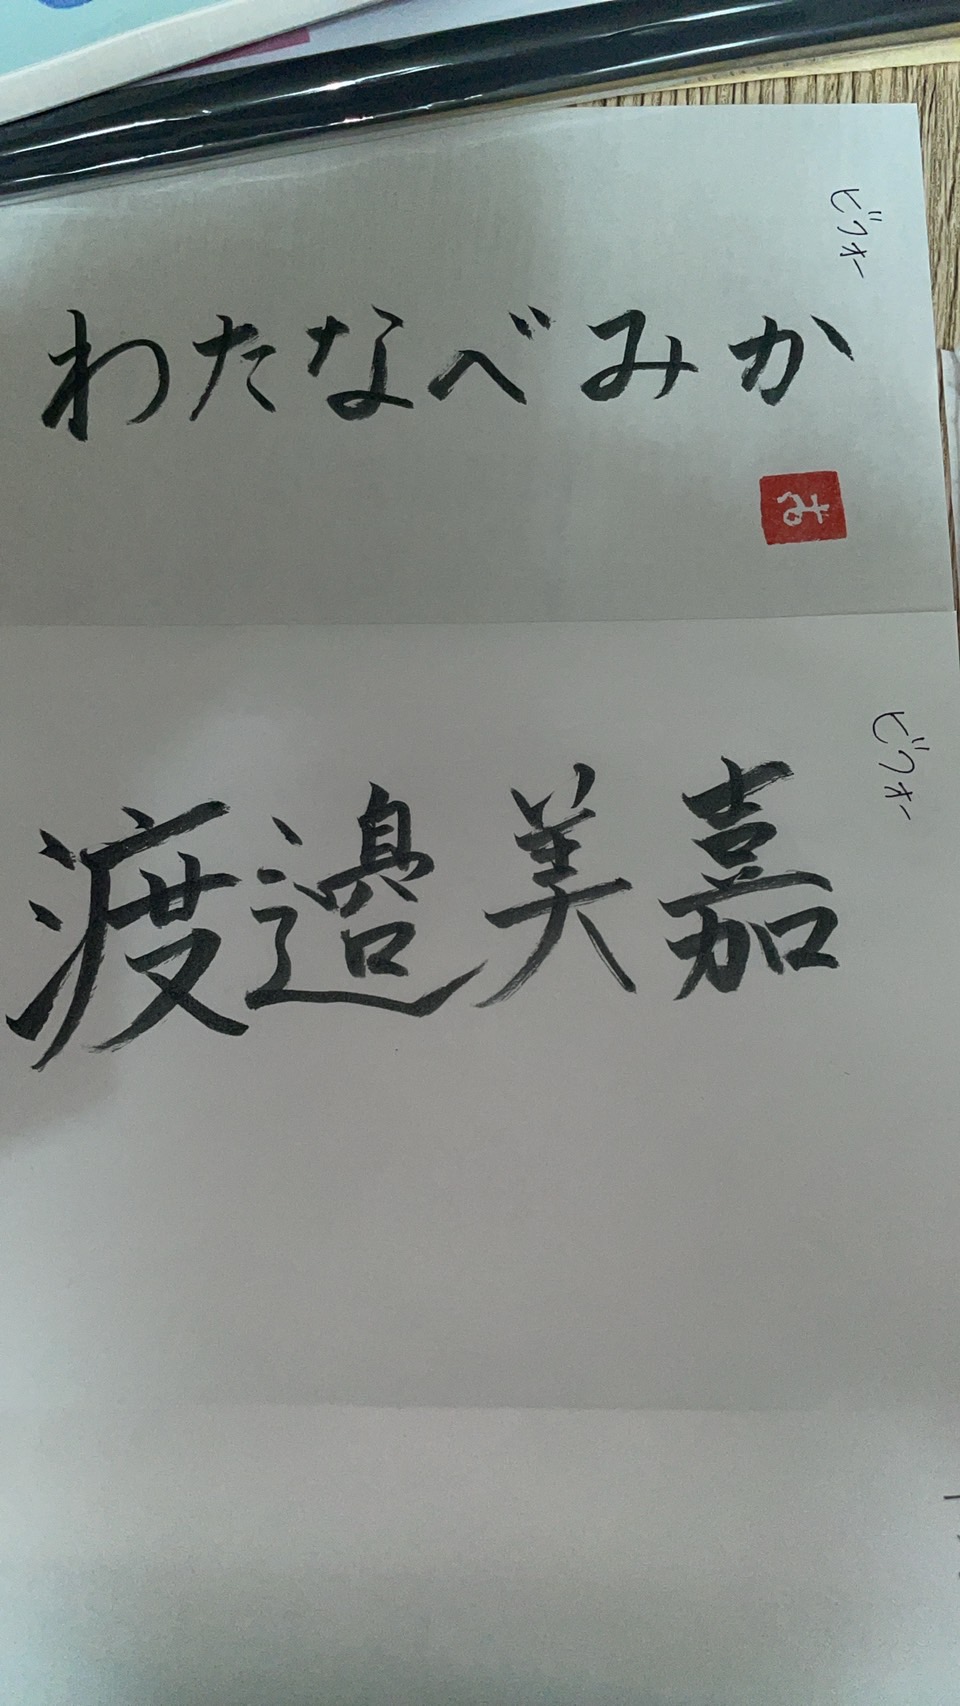 ビフォー
わたなべみか
お
ビフォー
渡邉美嘉